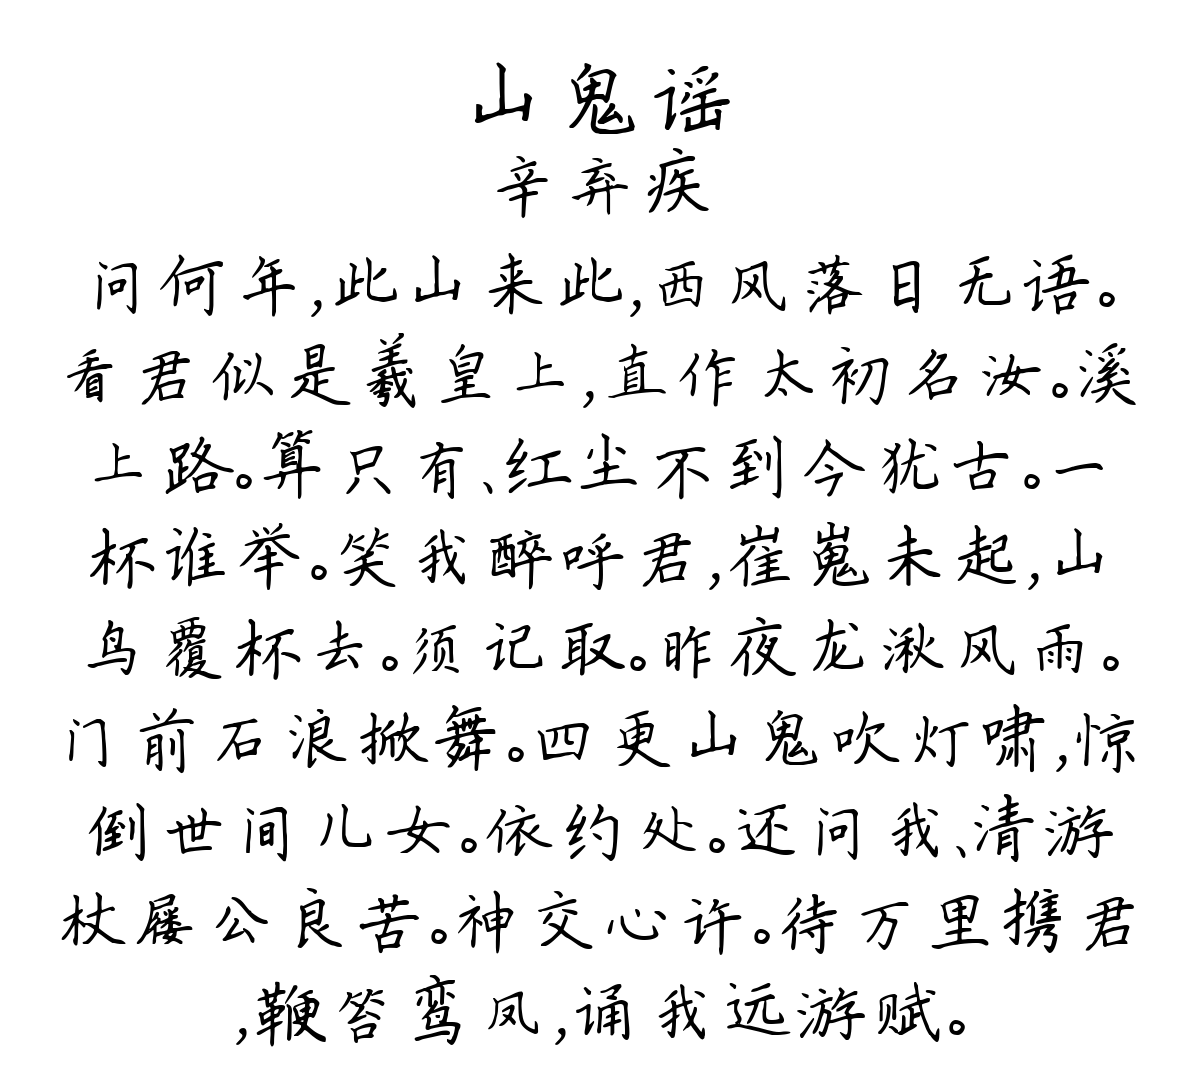 山鬼谣
辛弃疾
问何年,此山来此,西风落日无语。
看君似是羲皇上,直作太初名汝。溪
上路。算只有、红尘不到今犹古。一
杯谁举。笑我醉呼君,崔嵬未起,山
鸟覆杯去。须记取。昨夜龙湫风雨。
门前石浪掀舞。四更山鬼吹灯啸,惊
倒世间儿女。依约处。还问我、清游
杖屦公良苦。神交心许。待万里携君
,鞭笞鸾凤,诵我远游赋。